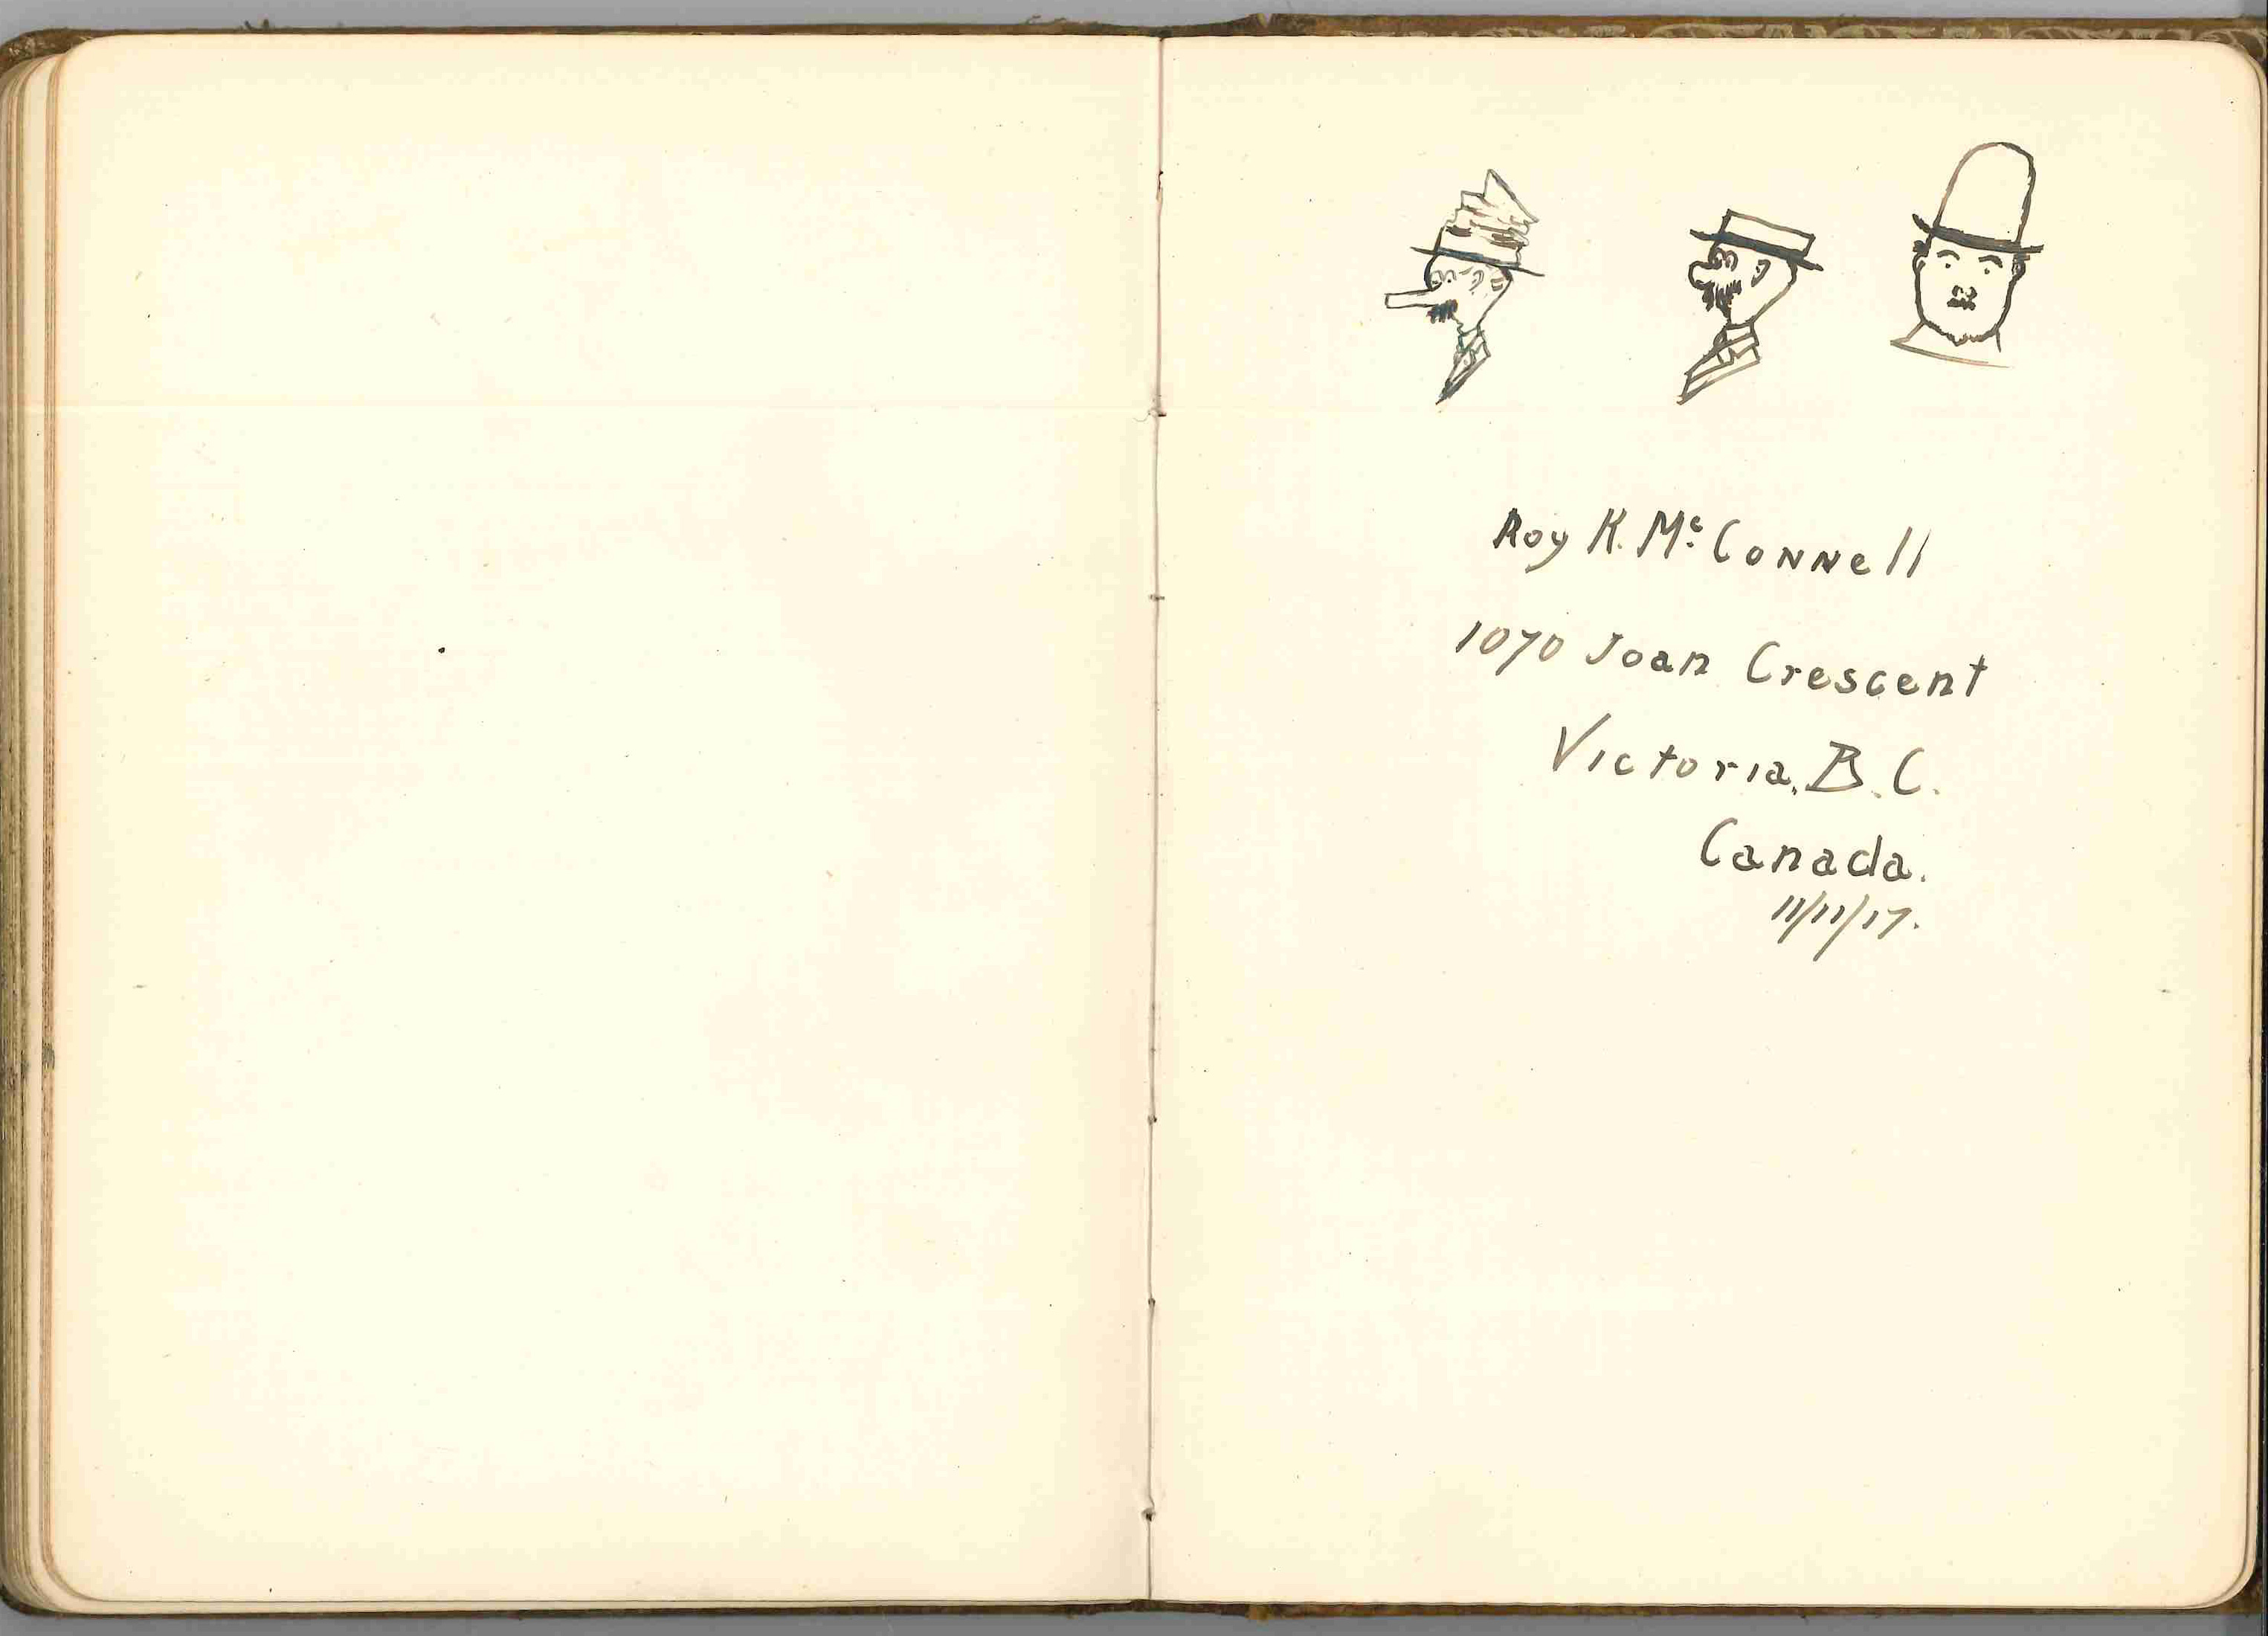 Roy K. McConnell
1070 Joan Crescent
Victoria, B.C.
Canada.
11/11/17.